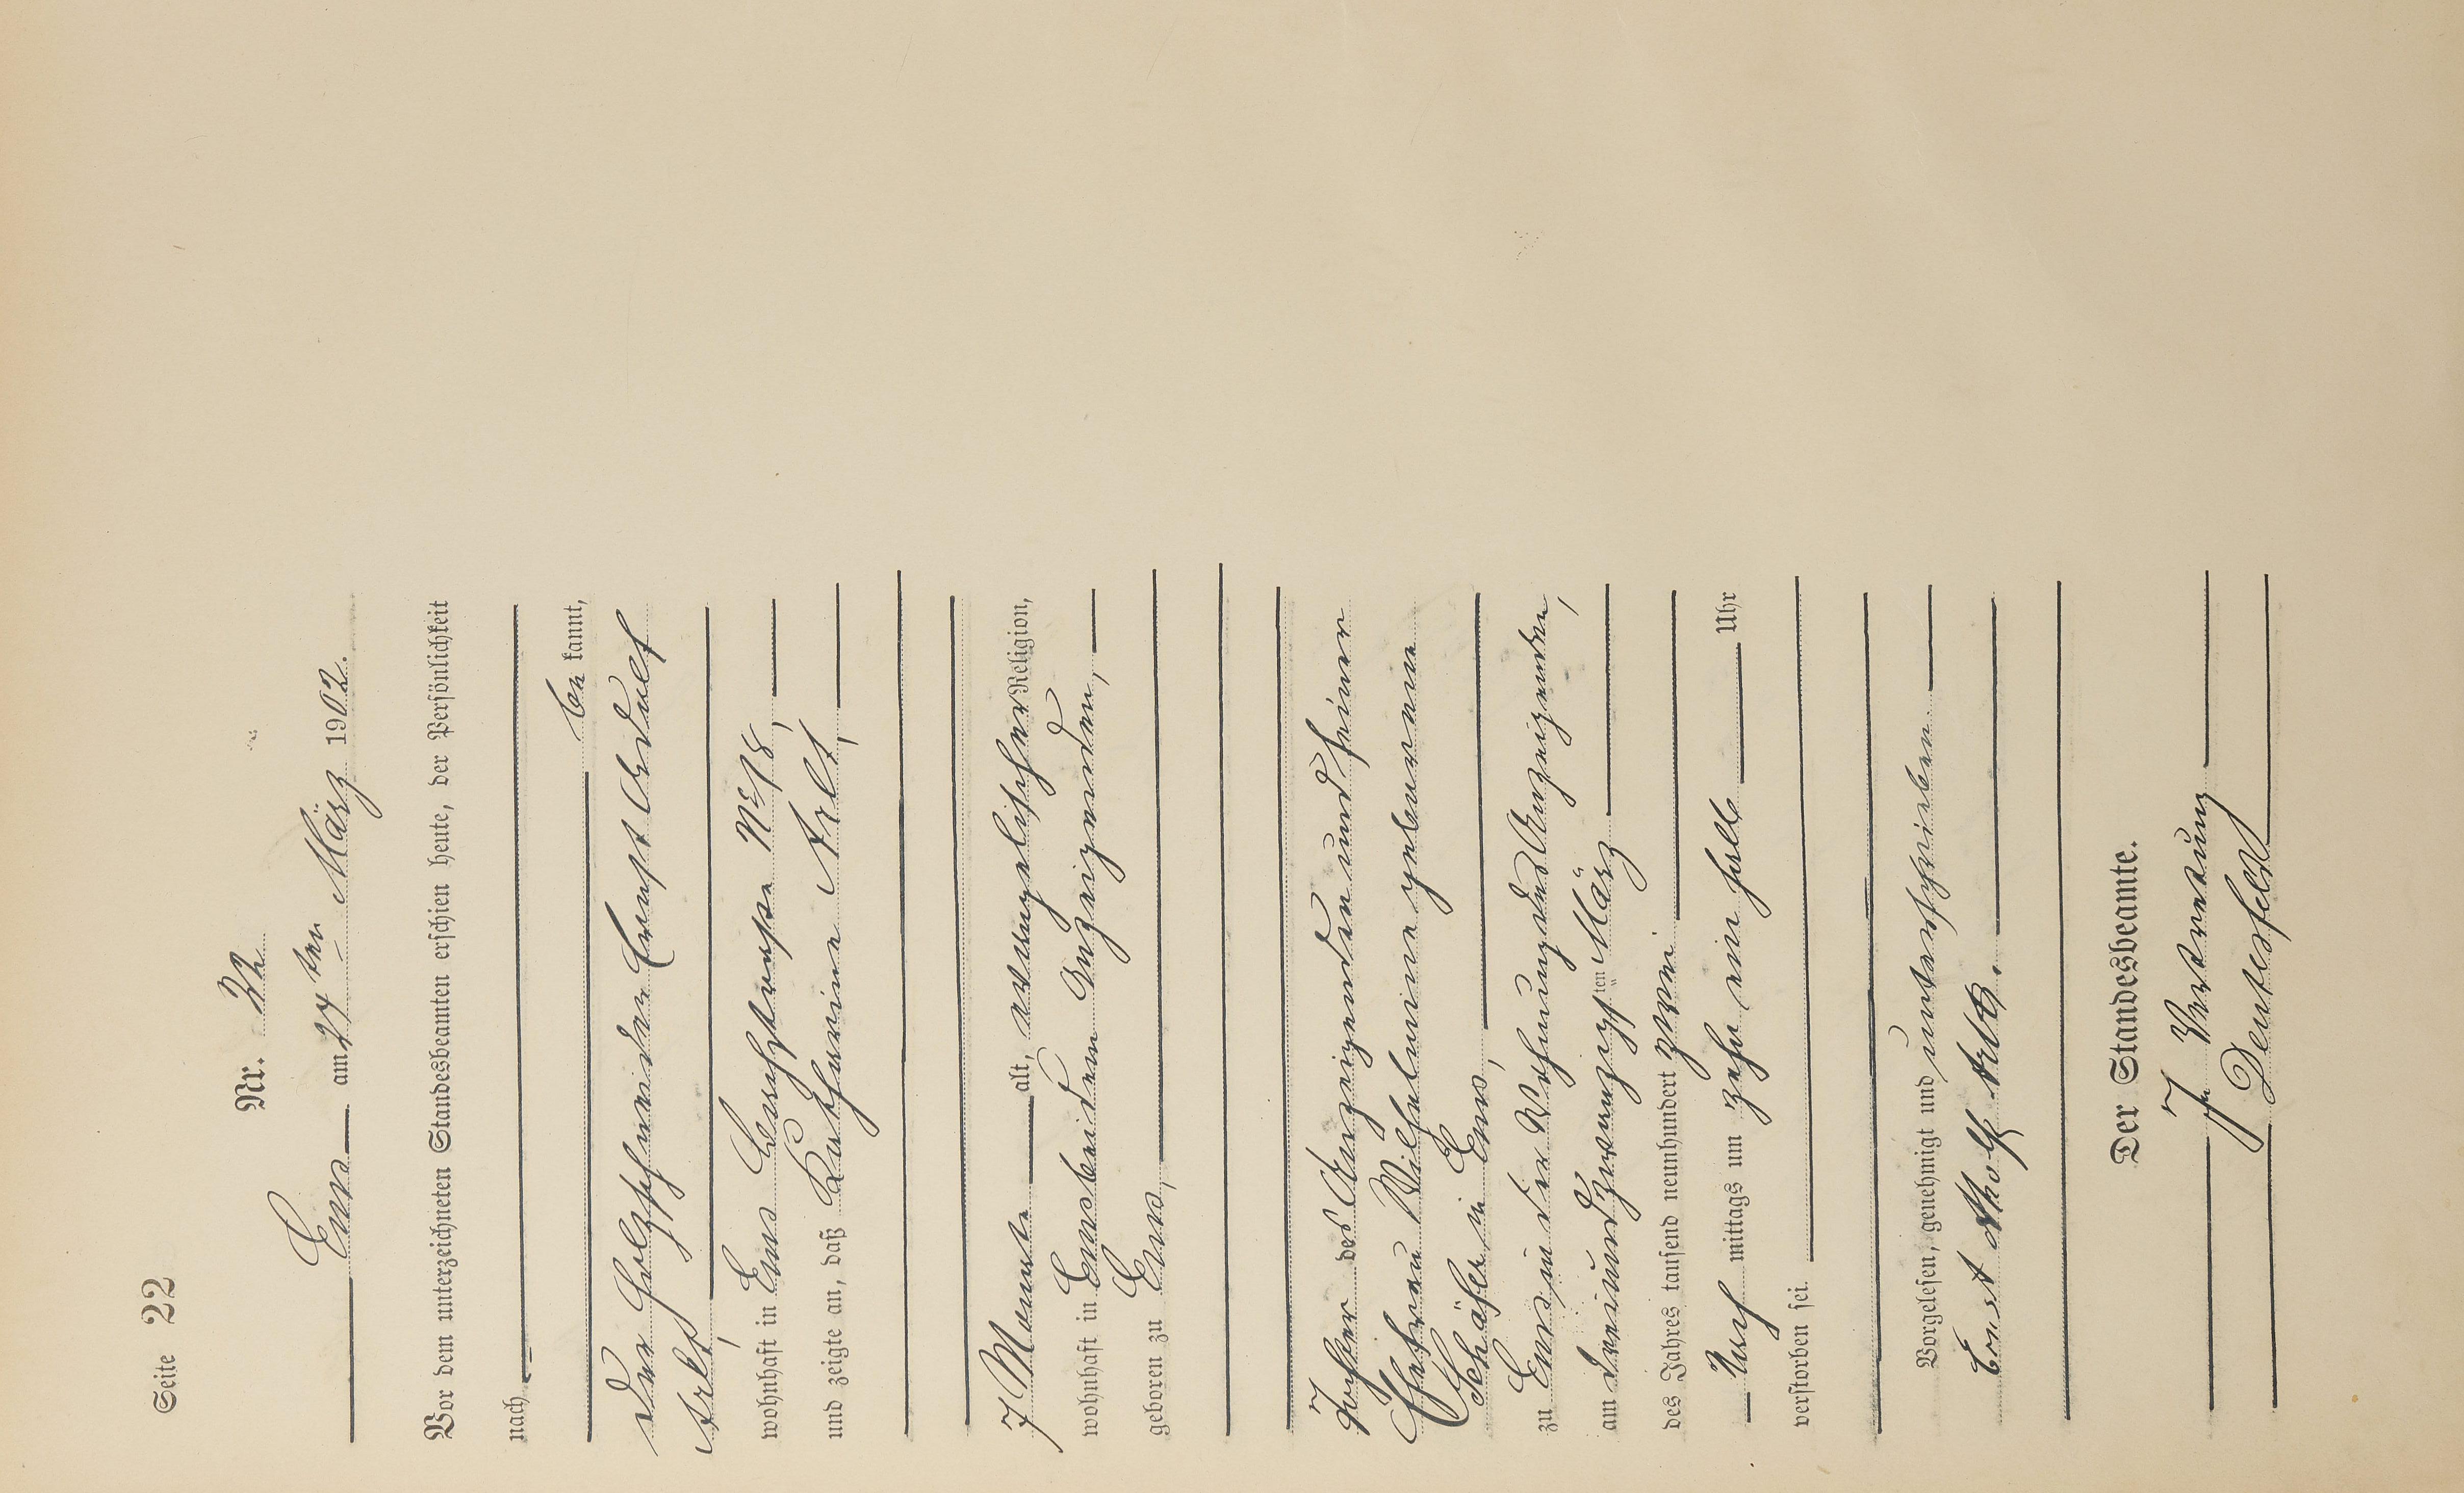 Seite 22
Nr. 32
Ems am 24ten März 1902.
Vor dem unterzeichneten Standesbeamten erschien heute, der Persönlichkeit
nach
be kannt,
der Holzschneider Ernst Adolf
Arlt,
wohnhaft in Ems Bachstraße No 18,
und zeigte an, daß Katharine Arlt,
7 Monate alt, evangelischer Religion,
wohnhaft in Ems bei dem Anzeigenden,
geboren zu Ems,
Tochter des Anzeigenden und seiner
Ehefrau Wilhelmine geborenen
Schäfer in Ems,
zu Ems in der Wohnung des Anzeigenden,
am dreiundzwanzigsten März
des Jahres tausend neunhundert zwei
Nach mittags um zehn ein halb Uhr
verstorben sei.
Vorgelesen, genehmigt und unterschrieben
Ernst Adolf Arlt.
Der Standesbeamte.
In Vertretung